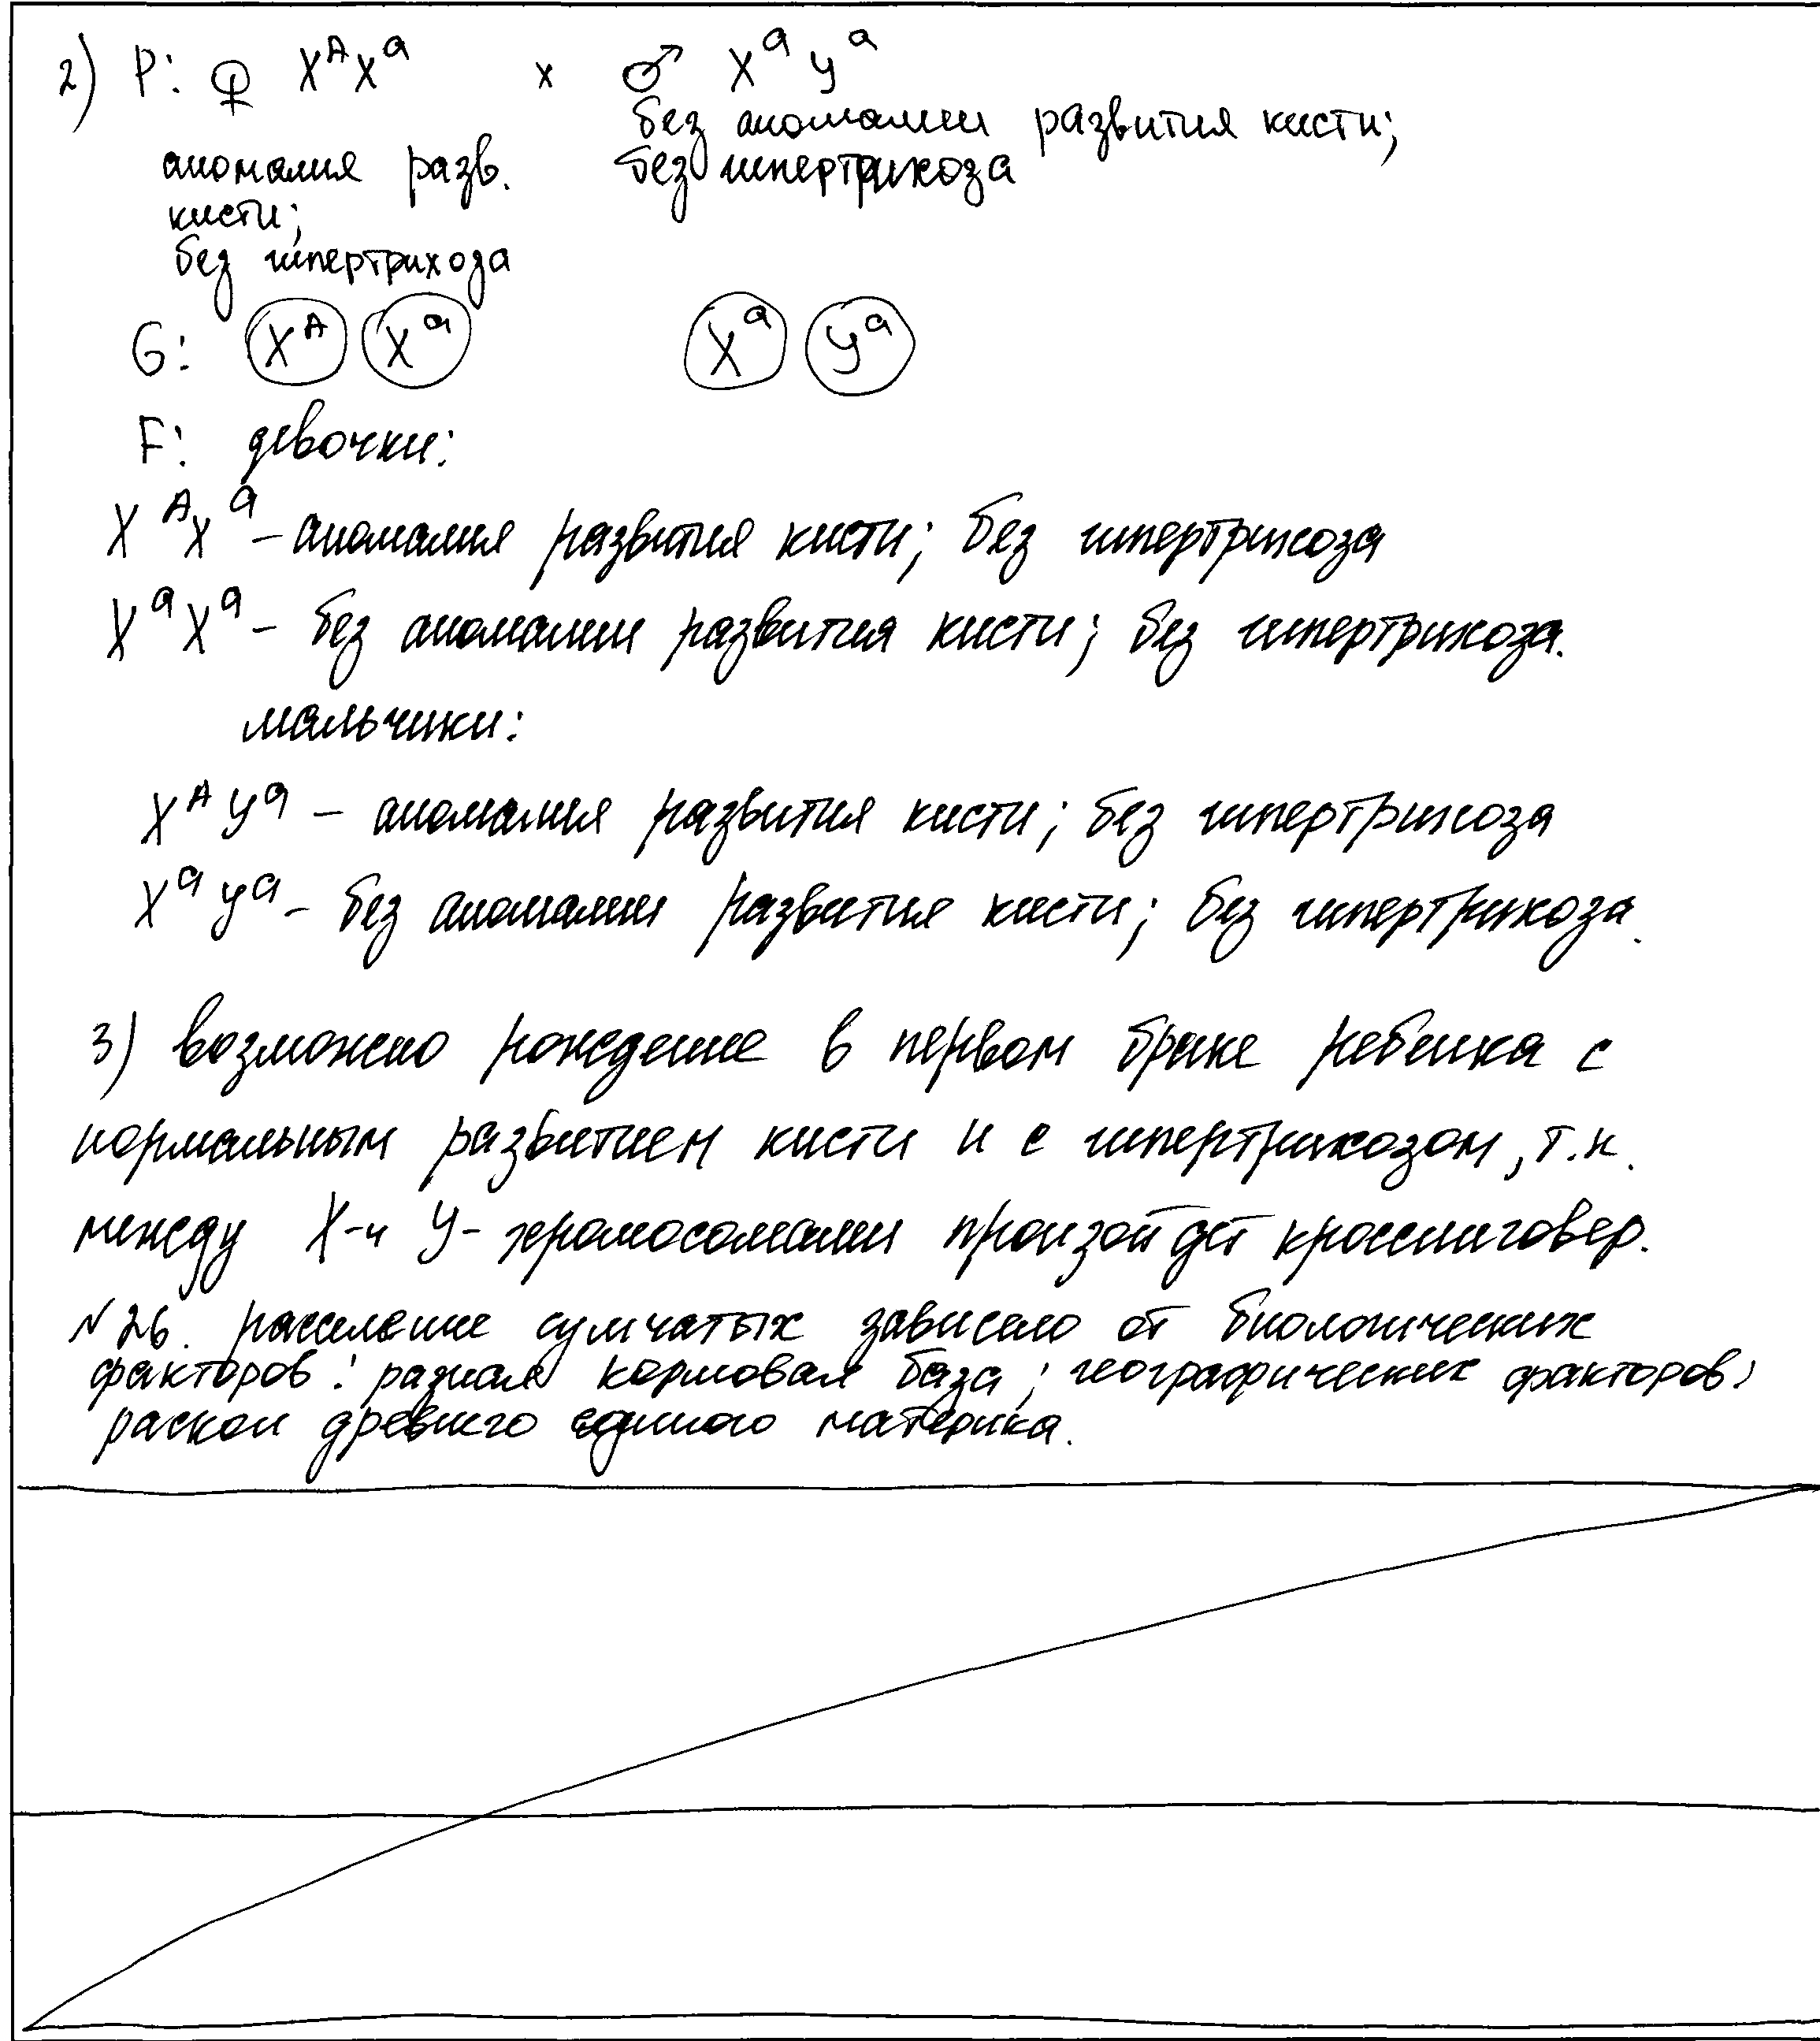 2) P: ♀ XᴬXᵃ x ♂ XᵃYᵃ
без аномалии развития кисти;
аномалия разв. без гипертрихоза
кисти;
без гипертрихоза
G: Xᴬ Xᵃ Xᵃ Yᵃ
F: девочки:
XᴬXᵃ – аномалия развития кисти; без гипертрихоза
XᵃXᵃ – без аномалии развития кисти; без гипертрихоза.
мальчики:
XᴬYᵃ – аномалия развития кисти; без гипертрихоза
XᵃYᵃ – без аномалии развития кисти; без гипертрихоза.
3) возможно рождение в первом браке ребенка с
нормальным развитием кисти и с гипертрихозом, т.к.
между X- и Y- хромосомами произойдет кроссинговер.
№26. расселение сумчатых зависело от биологических
факторов: разная кормовая база; географических факторов:
раскол древнего единого материка.